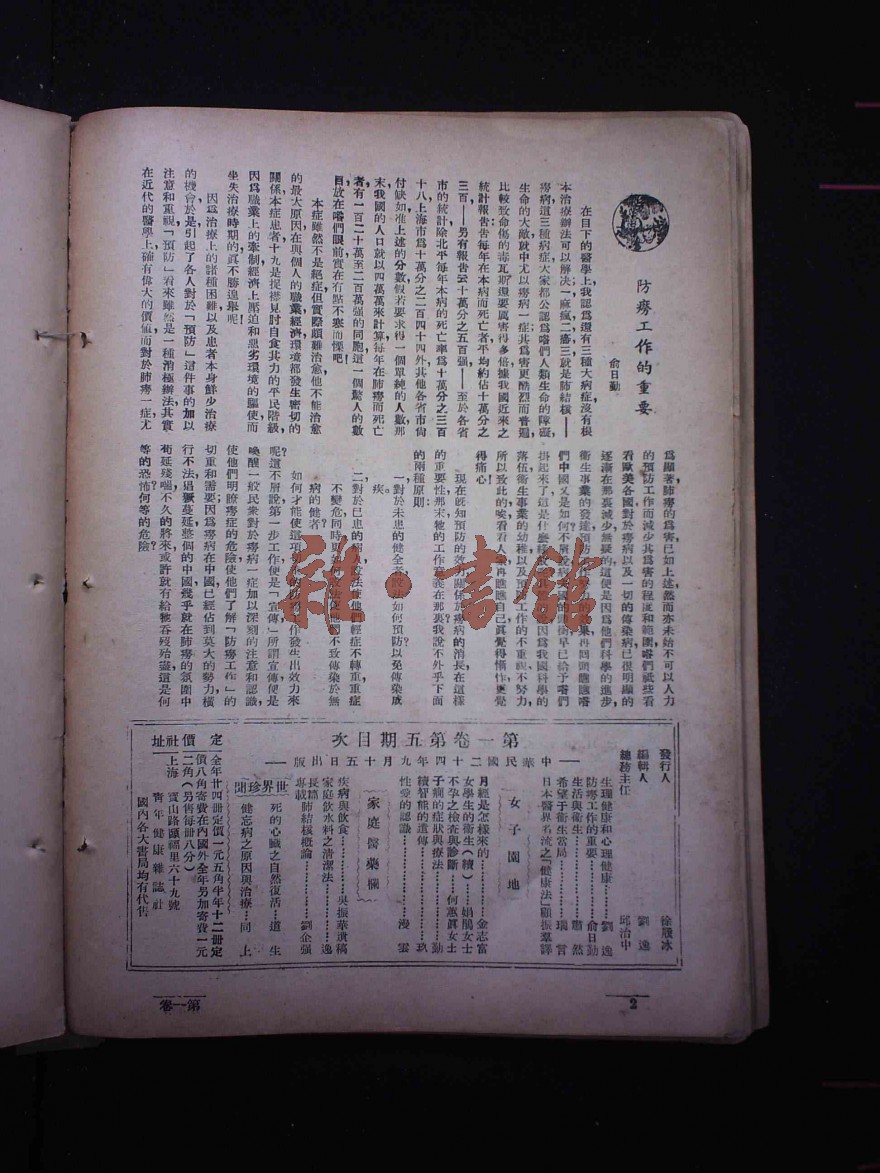 防癆工作的重要
俞日勤
在目下的醫學上我認爲還有三種大病症沒有根
本治療辦法可以解決一麻瘋二癌三就是肺結核——
癆病這三種病症大家都公認爲嚐們人類生命的障礙
生命的大敵就中尤以癆病一症其爲害更酷烈而普遍
比較致命傷的毒瓦斯還要厲害得多倍據我國近來之
統計報告告每年在本病而死亡者平均約佔十萬分之
三百——另有報告云十萬分之五百強——至於各省
市的統計除北平每年本病的死亡率爲十萬分之三百
十八上海市爲十萬分之二百四十四外其他各省市尙
付缺如准上述的分數假若要求得一個單純的人數那
末我國的人口就以四萬萬來計算每年在肺癆而死亡
者有一百二十萬至二百萬強的同胞這一個驚人的數
目放在嚐們眼前實在有點不寒而慄吧
本症雖然不是絕症但實際頗難治愈他不能治愈
的最大原因在與個人的職業經濟環境都發生密切的
關係本症患者十九是捉襟見肘自食其力的平民階級
因爲職業上的牽制經濟上壓迫和惡劣環境的驅使而
坐失治療時期的眞不勝遑舉呢！
因爲治療上的諸種困難以及患者本身鮮少治療
的機會於是引起了各人對於「預防」這件事的加以
注意和重視「預防」看來雖然是一種消極辦法其實
在近代的醫學上確有偉大的價値而對於肺癆一症尤
爲顯著肺癆的爲害已如上述然而亦未始不可以人力
的預防工作而減少其爲害的程度和範圍嚐們祇些看
看歐美各國對於癆病以及一切的傳染病已很明顯的
逐漸在那裏減少無疑的這便是因爲他們科學的進步
衞生事業的發達預防工作努力的效果再囘頭瞧瞧嚐
們中國又是如何不屑說病夫國的頭銜早已給予嚐們
掛起來了這是什麼緣故其實因爲我國科學的
落伍衞生事業的幼稚以及預防工作的不重視不努力
所以致此的唉看看人家再瞧瞧自己眞覺得慚怍更覺
得痛心！
現在旣知預防的效力關係於癆病的消長在這樣
的重要性那末牠的工作意義在那裏我說不外乎下面
的兩種原則：
一對於未患的健全者設法如何預防以免傳染成
疾。
二對於已患的病人設法使他們輕症不轉重重症
不變危同時更設法使他們不致傳染於無
病的健者
如何才能使這項的防癆工作發生出效力來
呢這不屑說第一步工作便是「宣傳」所謂宣傳便是
喚醒一般民衆對於癆病一症加以深刻的注意和認識
使他們明瞭癆症的危險使他們了解「防癆工作」的
切重和需要因爲癆病在中國已經佔到莫大的勢力橫
行不法猖獗蔓延整個的中國幾乎就在肺癆的氛圍中
苟延殘喘不久的將來或許就有給牠吞歿殆盡這是何
等的恐怖何等的危險？
雜·書館
發行人 徐殿冰
編輯人 劉逸
總務主任 邱治中
第一卷第五期目次
——中華民國二十四年九月十五日出版——
生理健康和心理健康………劉逸
防癆工作的重要………俞日勤
生活與衞生………翿然
希望于衞生當局………瑞言
日本醫界名流之「健康法」顧振羣譯
女子園地
月經是怎樣來的………金志富
女學生的衞生(續)………娟鵑女士
不孕之檢查與診斷………何蕙眞女士
子癇的症狀與療法………勤
續智能的遺傳………玖
性愛的認識………漫雲
家庭醫藥欄
疾病與飲食………吳振華遺稿
家庭飲水料之清潔法………逸
長篇專載肺結核槪論………劉企强
世界珍聞
死的心臟之自然復活………道生
健忘病之原因與治療………同上
定價
全年廿四冊定價一元五角半年十二冊定
價八角寄費在內國外全年另加寄費一元
二角(另售每冊八分)
社址
上海寶山路頤福里六十九號
靑年健康雜誌社
國內各大書局均有代售
第一卷
2